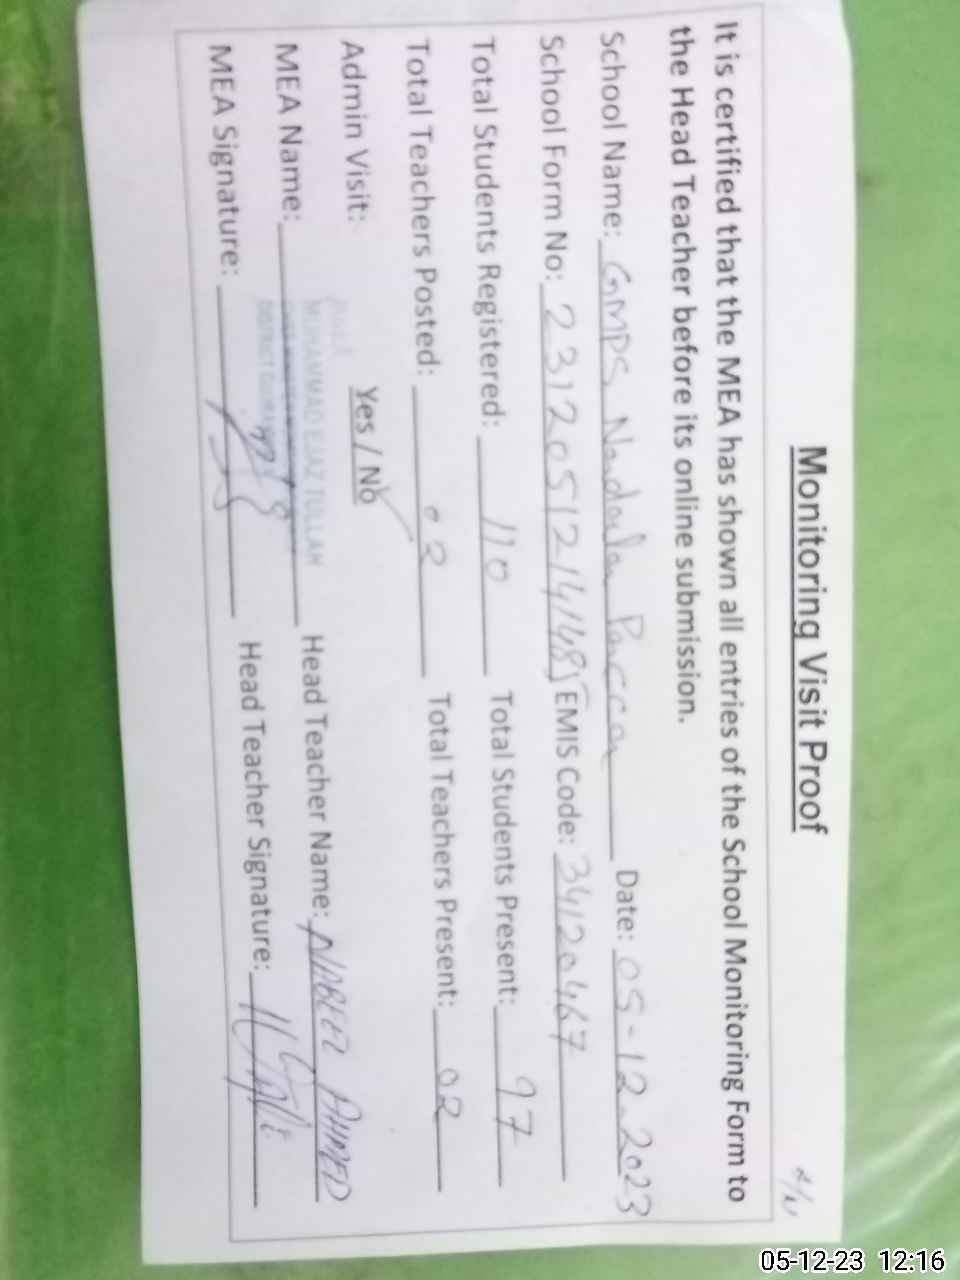 Monitoring Visit Proof
It is certified that the MEA has shown all entries of the School Monitoring Form to
the Head Teacher before its online submission.
School Name: GMPS Date: 05-12-2023
School Form No: EMIS Code: 34120467
Total Students Registered: 110 Total Students Present: 97
Total Teachers Posted: 02 Total Teachers Present: 02
Admin Visit: Yes / No
MEA Name: MUHAMMAD EJAZ TULLAH Head Teacher Name: NABEEL AHMED
MEA Signature: Head Teacher Signature:
05-12-23 12:16